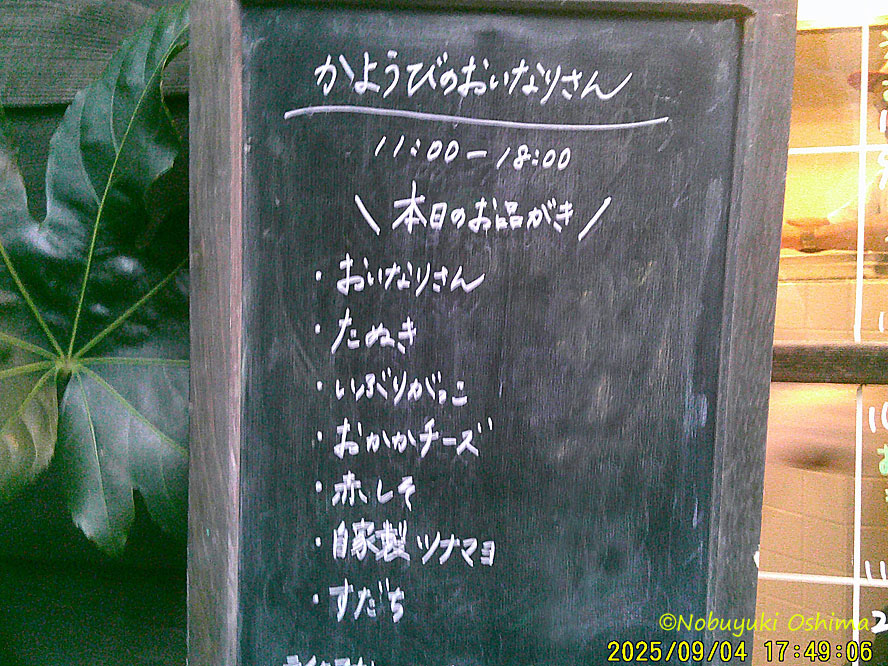 かようびのおいなりさん
11:00-18:00
\ 本日のお品がき /
・おいなりさん
・たぬき
・いぶりがっこ
・おかかチーズ
・赤しそ
・自家製ツナマヨ
・すだち
©Nobuyuki Oshima
2025/09/04 17:49:06